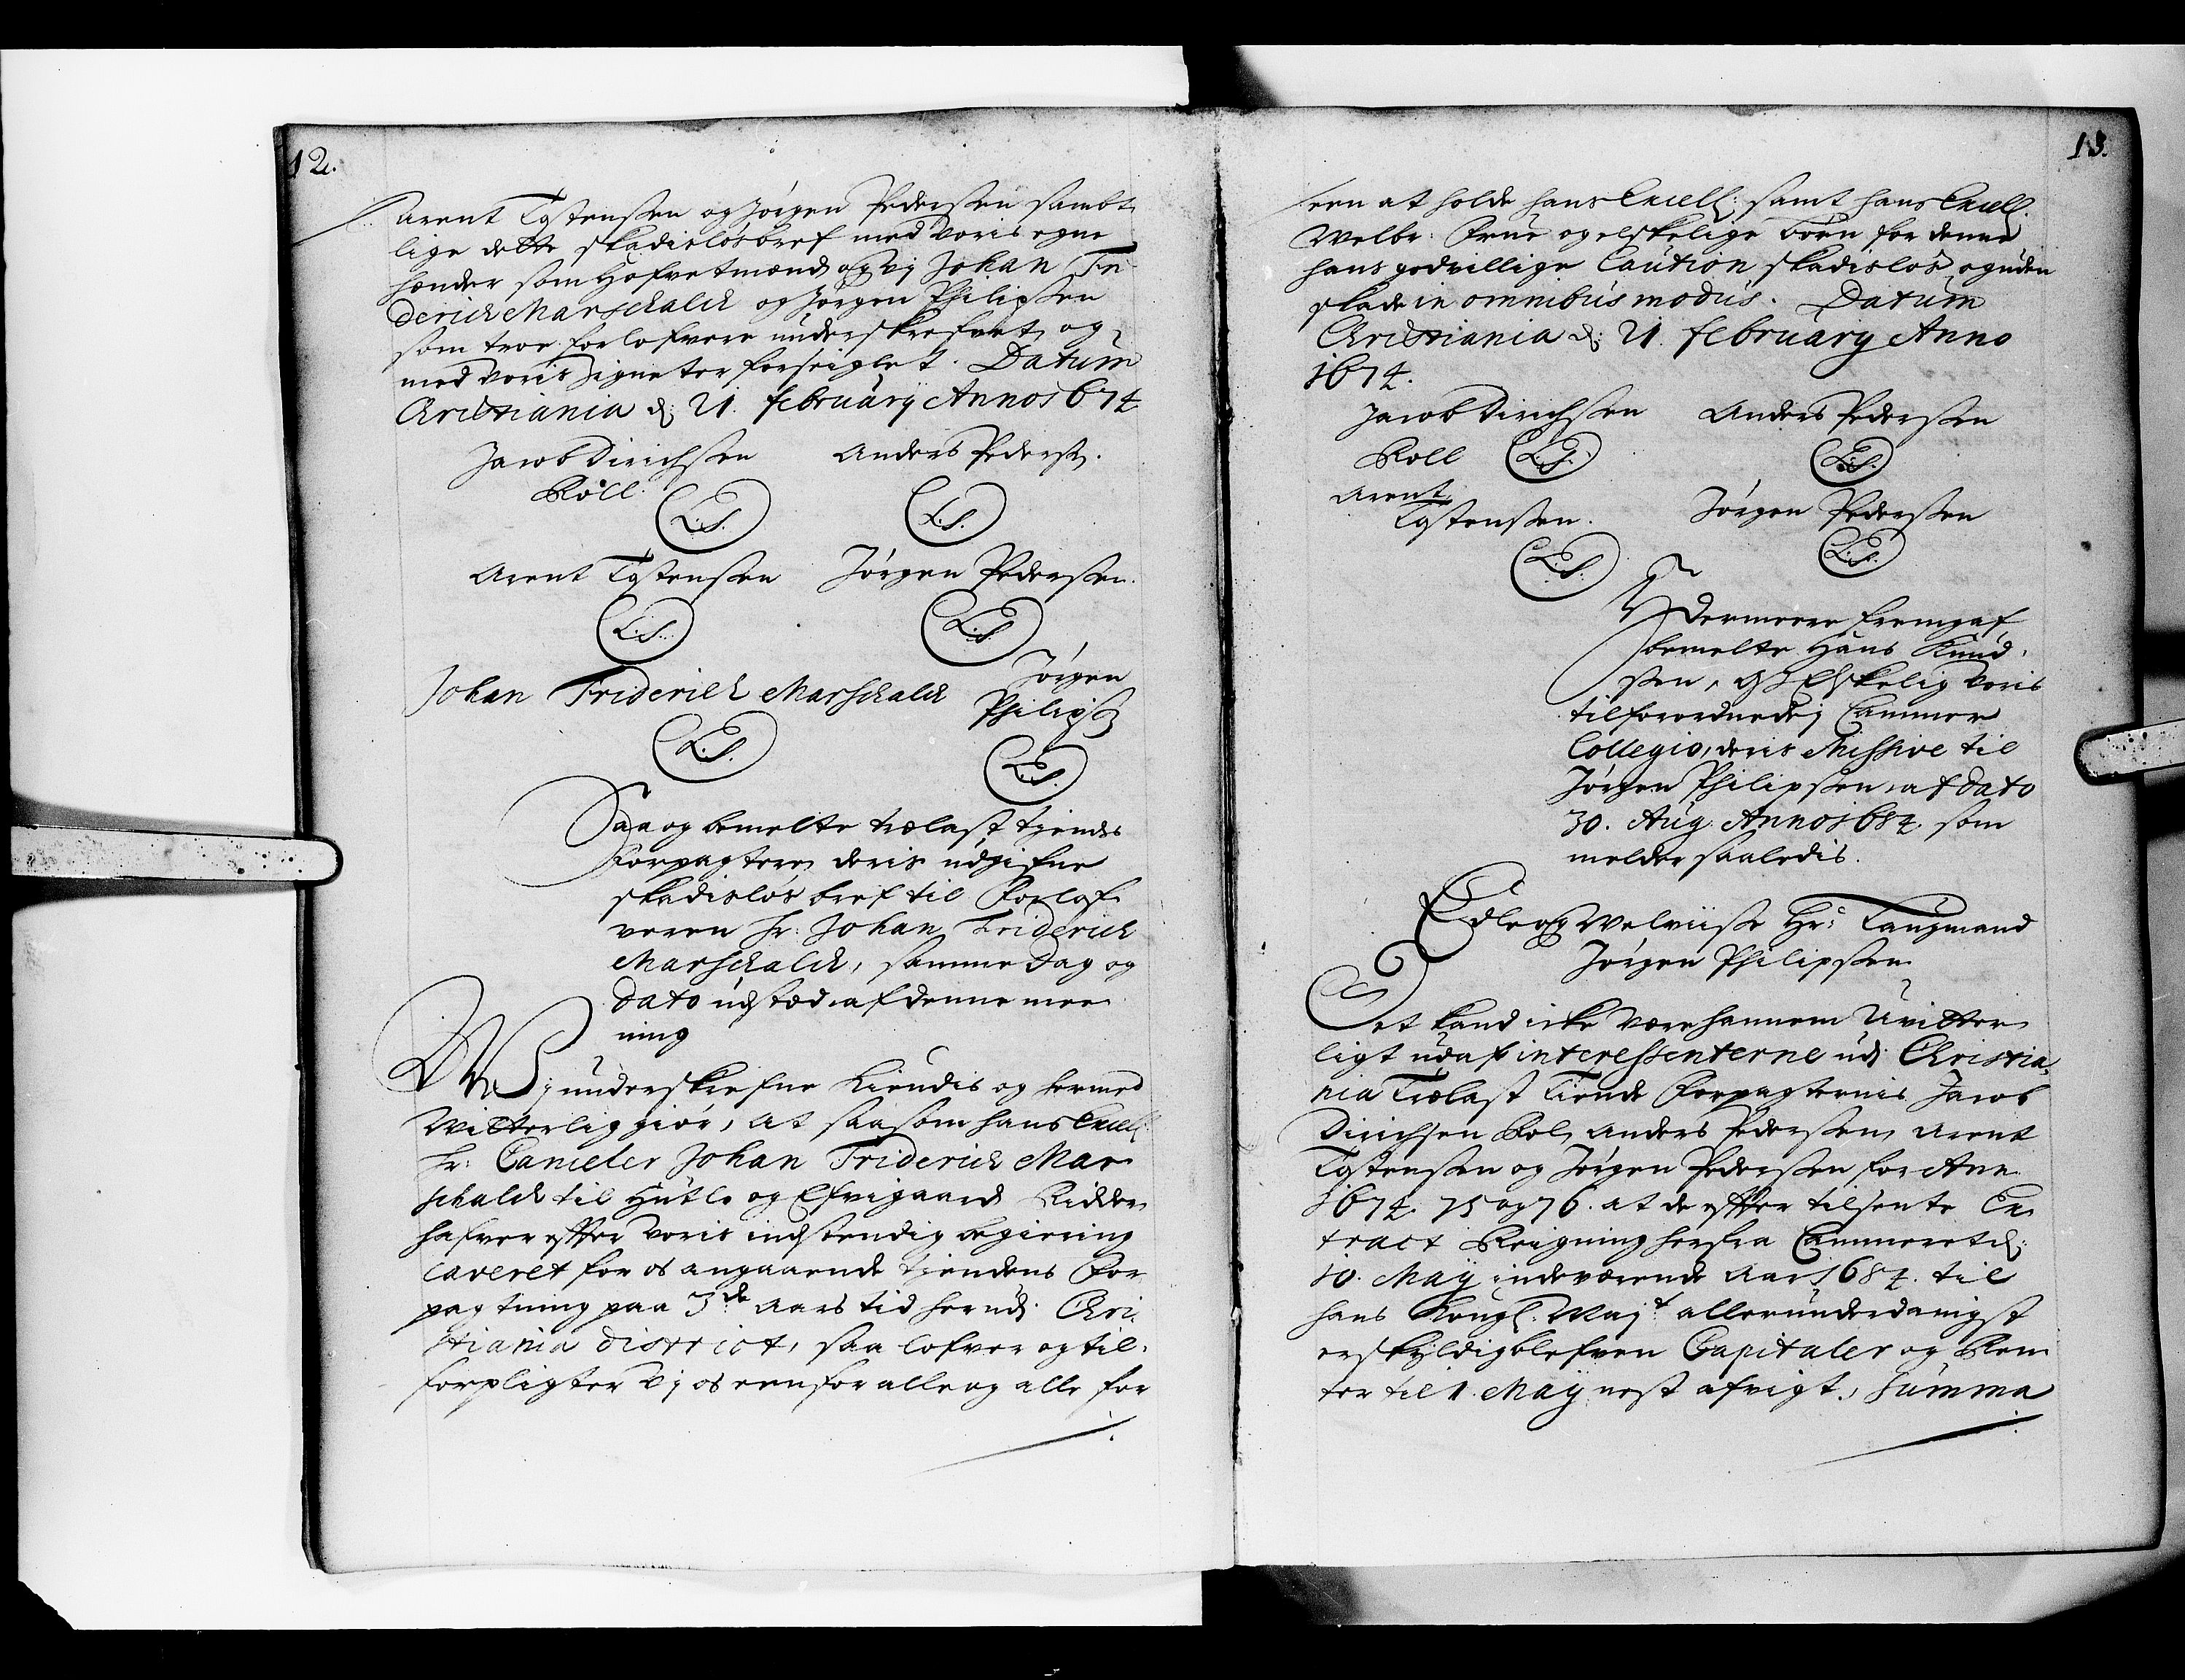 12.
Arent Tostensen og Jørgen Pedersen sambt
lige dette skadisløsbref med voris egne
hender som Hofvetmænd og vj Johan Fri
derich Marschalch og Jørgen Philipsen
som troe forlofvere underskrefvet og
med voris Signeter forseiglet. Datum
Christiania d: 21. february Anno 1674
Jacob Dirichsen Anders Peders:
Roll:
L.S. L.S.
Arent Tostensen Jørgen Pedersen.
L.S. L.S.
Johan Friderich Marschalch Jørgen
Philips:
L.S. L.S.
Saa og bemelte trælast tjendes
Forpagtere deris udgifne
skadisløs bref til Forlof
veren Hr: Johan Friderich
Marschalch, samme Dag og
Dato udsted af denne mee
ning
Wj underskrefne kiendis og hermed
Witterlig giør, at saasom hans Excell:
Hr: Canceler Johan Friderich Mar
schalch til Hutle og Efvigaard Ridder
hafver effter voris indstendig begiering
caveret for os angaaende tjendens For
pagtning paa 3de Aars tid her udj Chri
stiania district, saa lofver og til
forpligter vj os een for alle og alle for
13.
een at holde hans Excell: samt hans Excell.
Welbr: Frue og elskelige børn for denne
hans godvillige Caution skadisløs og uden
skade in omnibus modus. Datum
Christiania d: 21. february Anno
1674.
Jacob Dirichsen Anders Pedersen
Roll L.S. L.S.
Arent
Tostensen. Jørgen Pedersen
L.S. L.S.
Ydermeere fremgaf
bemelte Hans Knud
sen, Elskelig voris
tilforordnede j Cammer
Collegio, deris Missive til
Jørgen Philipsen, af dato
30. Aug. Anno 1684. som
melder saaledis.
Edle og Welviise Hr: Laugmand
Jørgen Philipsen
Det kand icke være hannem Uvitter
ligt udaf interessenterne udj Christia
nia Trælast Tiende Forpagternis Jacob
Dirichsen Rol, Anders Pedersen, Arent
Tostensen og Jørgen Pedersen for Ann
1674. 75 og 76. at de effter tilsente Ex
tract Reigning herfra Cammeret d:
10. Maÿ indeværende Aar 1684. til
hans Kongl: Mayt allerunderdanigst
erskyldig blefven Capitaler og Ren
ter til 1. Maÿ nest afvigt, Summa